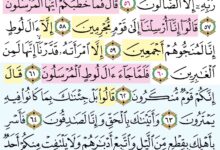 رَبِّهِۦٓ إِلَّا ٱلضَّآلُّونَ ٥٦ قَالَ فَمَا خَطْبُكُمْ أَيُّهَا ٱلْمُرْسَلُونَ
٥٧ قَالُوٓا۟ إِنَّآ أُرْسِلْنَآ إِلَىٰ قَوْمٍ مُّجْرِمِينَ ٥٨ إِلَّآ ءَالَ لُوطٍ
إِنَّا لَمُنَجُّوهُمْ أَجْمَعِينَ ٥٩ إِلَّا ٱمْرَأَتَهُۥ قَدَّرْنَآ إِنَّهَا لَمِنَ
ٱلْغَـٰبِرِينَ ٦٠ فَلَمَّا جَآءَ ءَالَ لُوطٍ ٱلْمُرْسَلُونَ ٦١ قَالَ
إِنَّكُمْ قَوْمٌ مُّنكَرُونَ ٦٢ قَالُوا۟ بَلْ جِئْنَـٰكَ بِمَا كَانُوا۟ فِيهِ
يَمْتَرُونَ ٦٣ وَأَتَيْنَـٰكَ بِٱلْحَقِّ وَإِنَّا لَصَـٰدِقُونَ ٦٤ فَأَسْرِ
بِأَهْلِكَ بِقِطْعٍ مِّنَ ٱلَّيْلِ وَٱتَّبِعْ أَدْبَـٰرَهُمْ وَلَا يَلْتَفِتْ مِنكُمْ أَحَدٌ